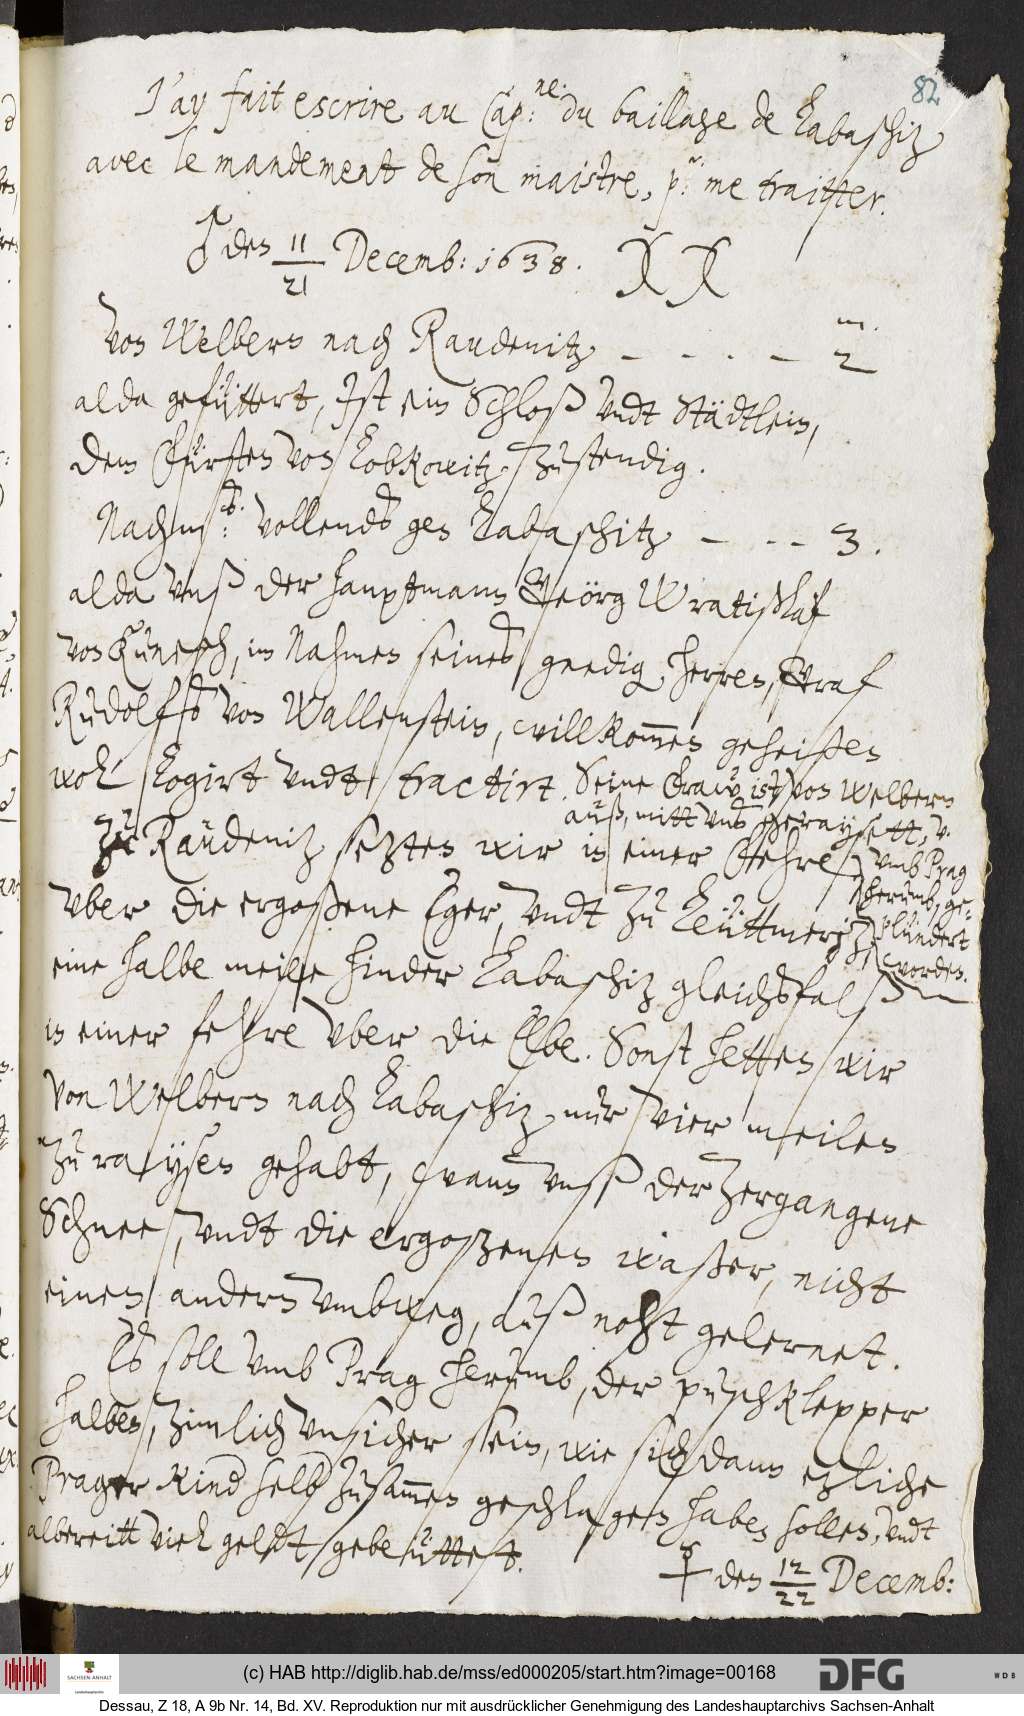 82
J'ay fait escrire au Cap:ne: du baillage de Labaschiz
avec le mandement de son maistre, p:r me traitter.
♂ den 11/21 Decemb: 1638. XX
Von Welbern nach Raudenitz – – . – m. 2
alda gefüttert, Ist ein Schloß undt Städtlein,
dem Fürsten von Lobkowitz zustendig.
Nachm:s vollends gen Labaschitz – – – 3.
alda unß der Hauptmann Geörg Wratißlaf
von Künesch, im Nahmen seines gnedig. Herren, Graf
Rudolfs von Wallenstein, willkommen geheißen
wol logirt undt tractirt. Seine Fraw ist von Welbern
auß, mitt uns geraysett, v.
umb Prag
herumb, ge-
plündert
worden.
Zu Raudeniz sezten wir in einer Fehre
uber die ergoßene Eger, undt zu Leüttmeriz,
eine halbe meile hinder Labaschiz gleichsfalß
in einer fehre uber die Elbe. Sonst hetten wir
von Welbern nach Labaschiz nur vier meilen
zu raysen gehabt, wann unß der zergangene
Schnee, undt die ergoßenen waßer, nicht
einen andern umbweg, auß noht gelernet.
Es soll umb Prag herumb, der puschklepper
halben, zimlich unsicher sein, wie sich dann ezliche
Prager Kind selb zusammen geschlagen haben sollen, undt
albereitt viel geldt gebeüttet.
☿ den 12/22 Decemb:
(c) HAB http://diglib.hab.de/mss/ed000205/start.htm?image=00168
SACHSEN-ANHALT
DFG
WDB
Dessau, Z 18, A 9b Nr. 14, Bd. XV. Reproduktion nur mit ausdrücklicher Genehmigung des Landeshauptarchivs Sachsen-Anhalt